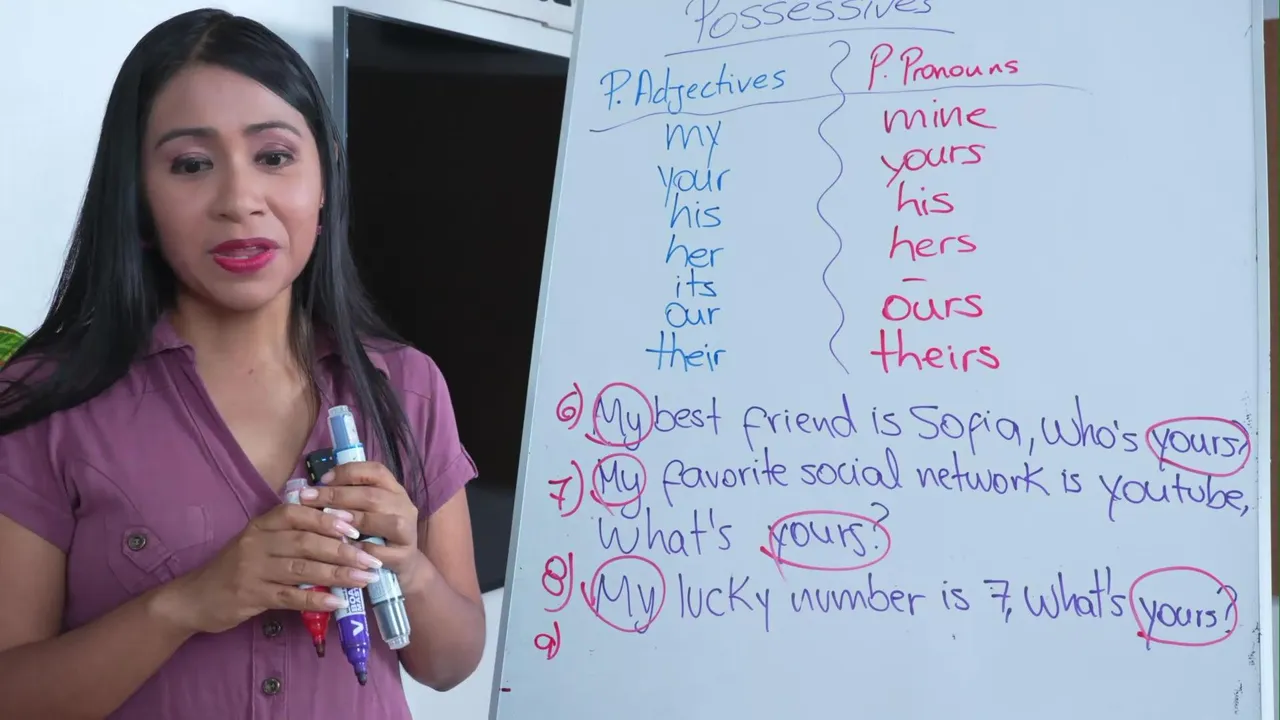 Possessives
P. Adjectives
my
your
his
her
its
our
their
P. Pronouns
mine
yours
his
hers
–
ours
theirs
6) My best friend is Sofia, Who's yours?
7) My favorite social network is youtube,
What's yours?
8) My lucky number is 7, What's yours?
9)
V BOA